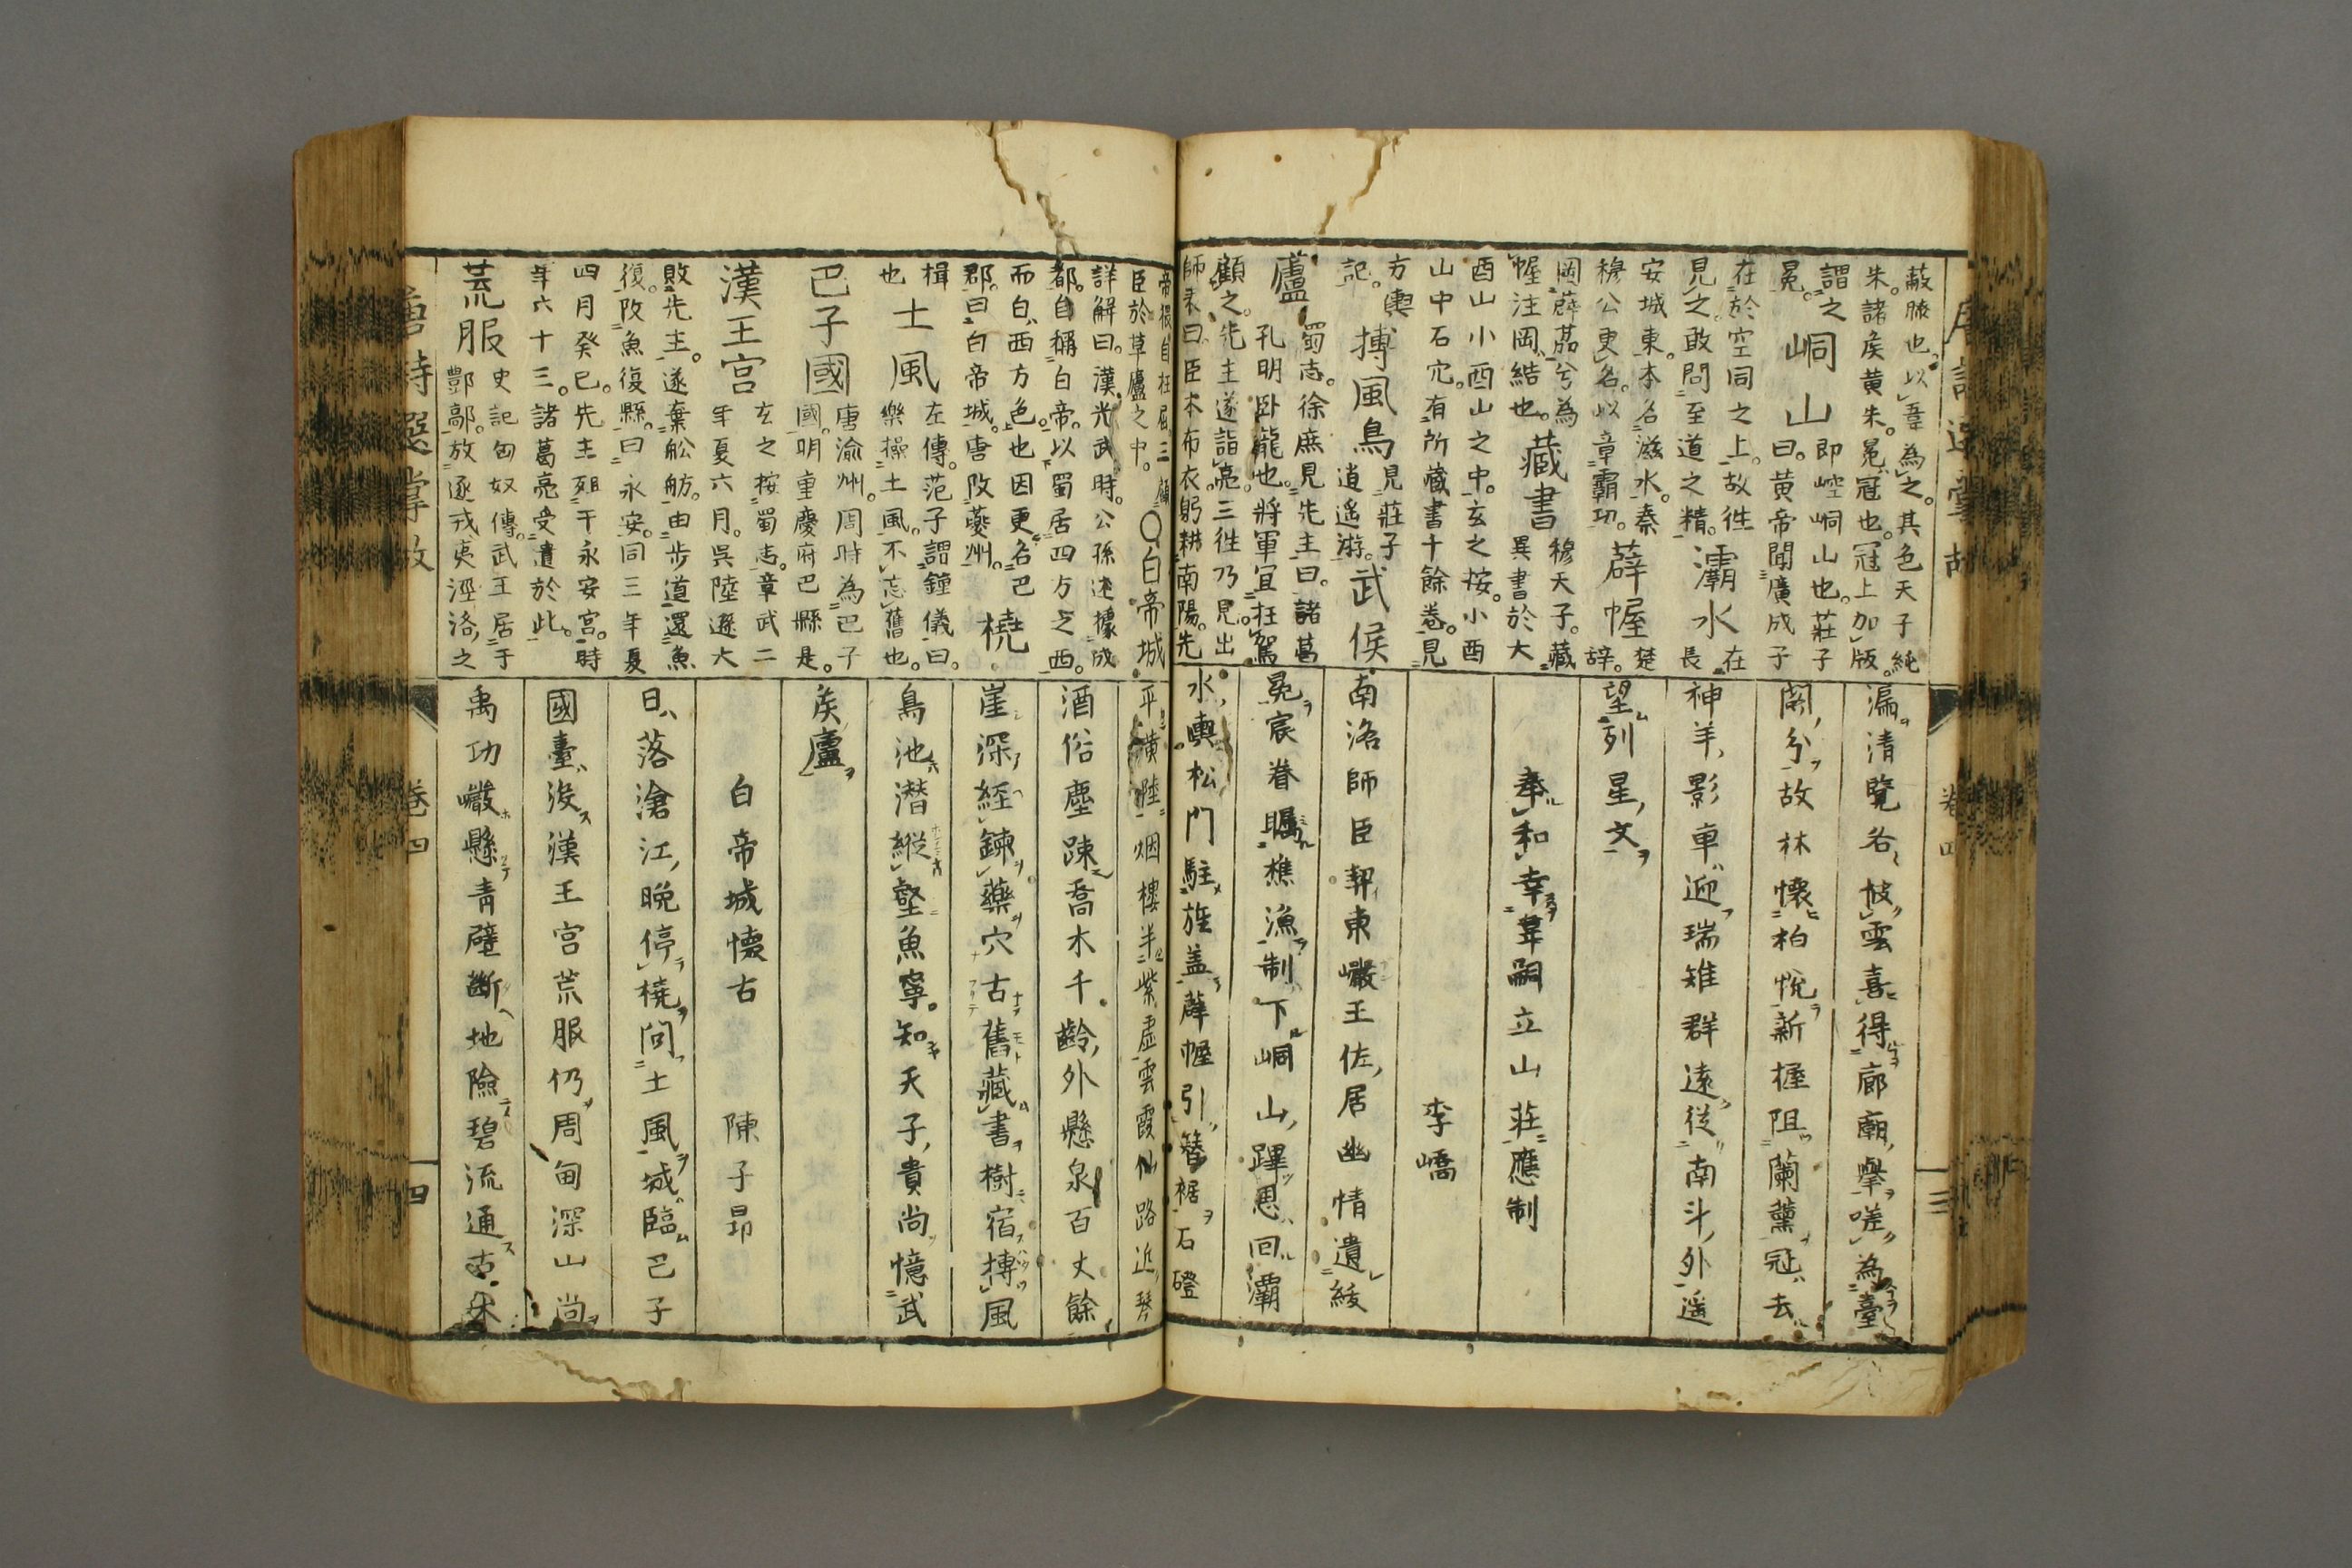 唐詩選掌故
卷四
三
蔽膝也。以韋為之。其色天子純
朱。諸矦黄朱。冕冠也。冠上加版。
謂之
冕。
峒山
即崆峒山也。莊子
曰。黄帝聞廣成子
在於空同之上。故徃
見之敢問至道之精。
灞水
在
長
安城東。本名滋水。秦
穆公更名。以章霸功。
薜幄
楚
辞。
罔薜茘兮為
幄注罔結也。
藏書
穆天子。藏
異書於大
酉山小酉山之中。玄之按。小酉
山中石穴。有所藏書十餘巻。見
方輿
記。
搏風鳥
見莊子
逍遥游。
武侯
蘆
蜀志。徐庶見先主曰。諸葛
孔明卧龍也。將軍宜枉駕
顧之。先主遂詣亮。三徃乃見。出
師表曰。臣本布衣。躬耕南陽。先
漏清覽各披雲喜得廊廟舉嗟為臺
閣分故林懷柏悅新握阻蘭薰冠去
神羊影車迎瑞雉群遠從南斗外遥
望列星文
奉和幸韋嗣立山荘應制
李嶠
南洛師臣契東巖王佐居幽情遺紱
冕宸眷矚樵漁制下峒山蹕恩回灞
水輿松門駐旌蓋薜幄引簪裾石磴
帝猥自枉屈三顧
臣於草廬之中。
○白帝城
詳解曰。漢光武時。公孫述據成
都。自稱白帝。以蜀居四方之西。
而白。西方色也因更名巴
郡。曰白帝城。唐改夔州。
橈
楫
也
土風
左傳。范子謂鐘儀曰。
樂操土風。不忘舊也。
巴子國
唐渝州。周時為巴子
國。明重慶府巴縣是。
漢王宮
玄之按蜀志。章武二
年夏六月。吳陸遜大
敗先主。遂棄舩舫。由歩道還魚
復。改魚復縣。曰永安。同三年夏
四月癸巳。先主殂于永安宮。時
年六十三。諸葛亮受遺於此。
荒服
史記匈奴傳。武王居于
酆鄗。放逐戎夷涇洛之
平黄陸烟樓半紫虚雲霞仙路近琴
酒俗塵疎喬木千齡外懸泉百丈餘
崖深經錬藥穴古舊藏書樹宿搏風
鳥池潛縱壑魚寧知天子貴尚憶武
矦廬
白帝城懐古
陳子昂
日落滄江晩停橈問土風城臨巴子
國臺没漢王宮荒服仍周甸深山尚
禹功巖懸青壁斷地險碧流通古木
唐詩選掌故
卷四
四